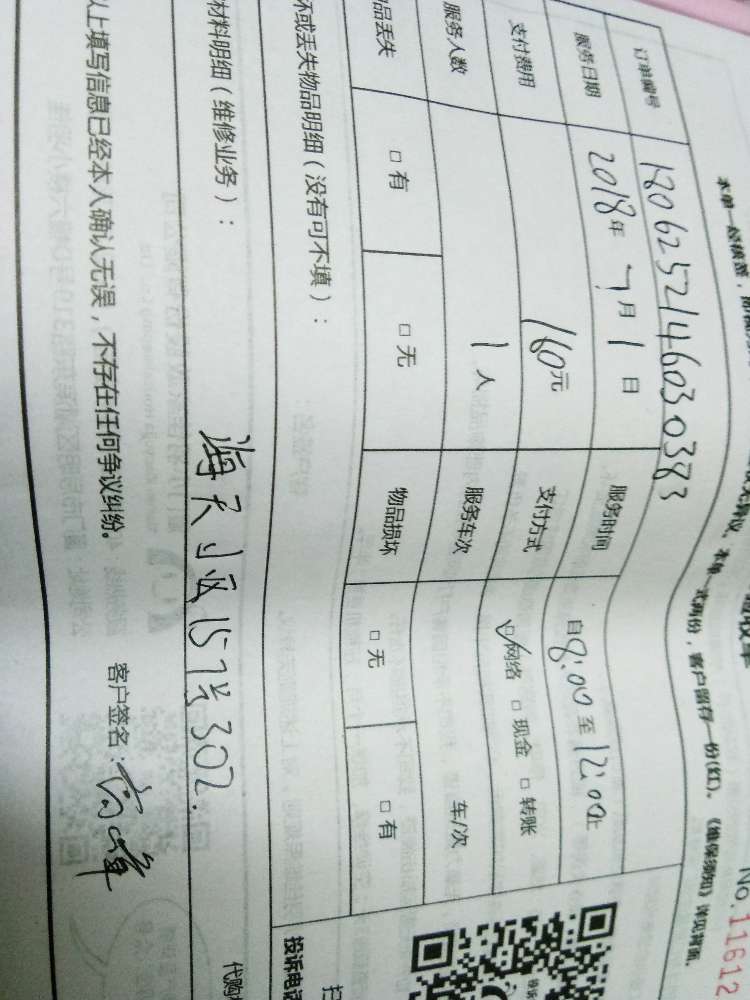 验收单
No.11612
本单一式两份，客户留存一份(红)。《维保须知》详见背面。
订单编号 180625214603 0383
服务日期 2018年 7月 1日 服务时间 自8:00至12:00止
支付费用 160元 支付方式 ☑网络 □现金 □转账
服务人数 1人 服务车次 车/次
品丢失 □有 □无 物品损坏 □无 □有
坏或丢失物品明细（没有可不填）：
材料明细（维修业务）：
海天小区157号302.
以上填写信息已经本人确认无误，不存在任何争议纠纷。
客户签名：
投诉电话
代购